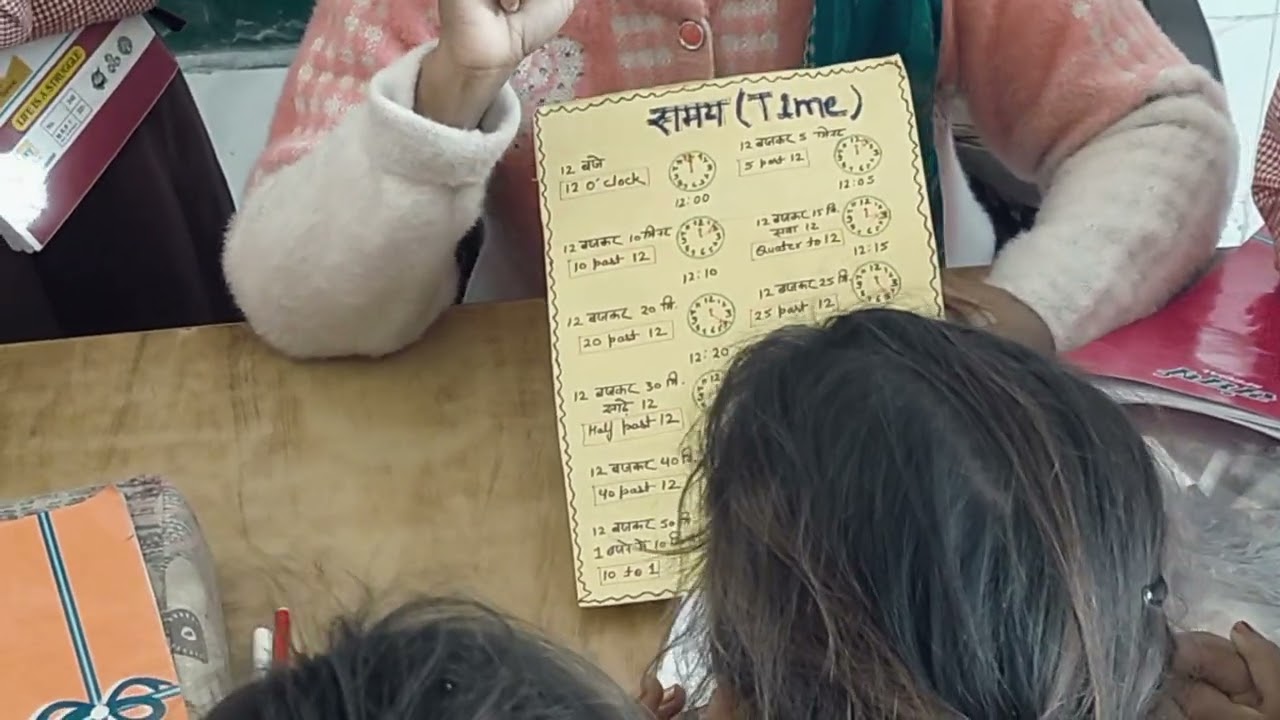 LIFE IS A STRUGGLE
समय (Time)
12 बजे
12 O'clock
12:00
12 बजकर 5 मिनट
5 past 12
12:05
12 बजकर 10 मिनट
10 past 12
12:10
12 बजकर 15 मि.
सवा 12
Quater to 12
12:15
12 बजकर 20 मि.
20 past 12
12:20
12 बजकर 25 मि.
25 past 12
12 बजकर 30 मि.
साढ़े 12
Half past 12
12 बजकर 40 मि.
40 past 12
12 बजकर 50
1 बजने में 10
10 to 1